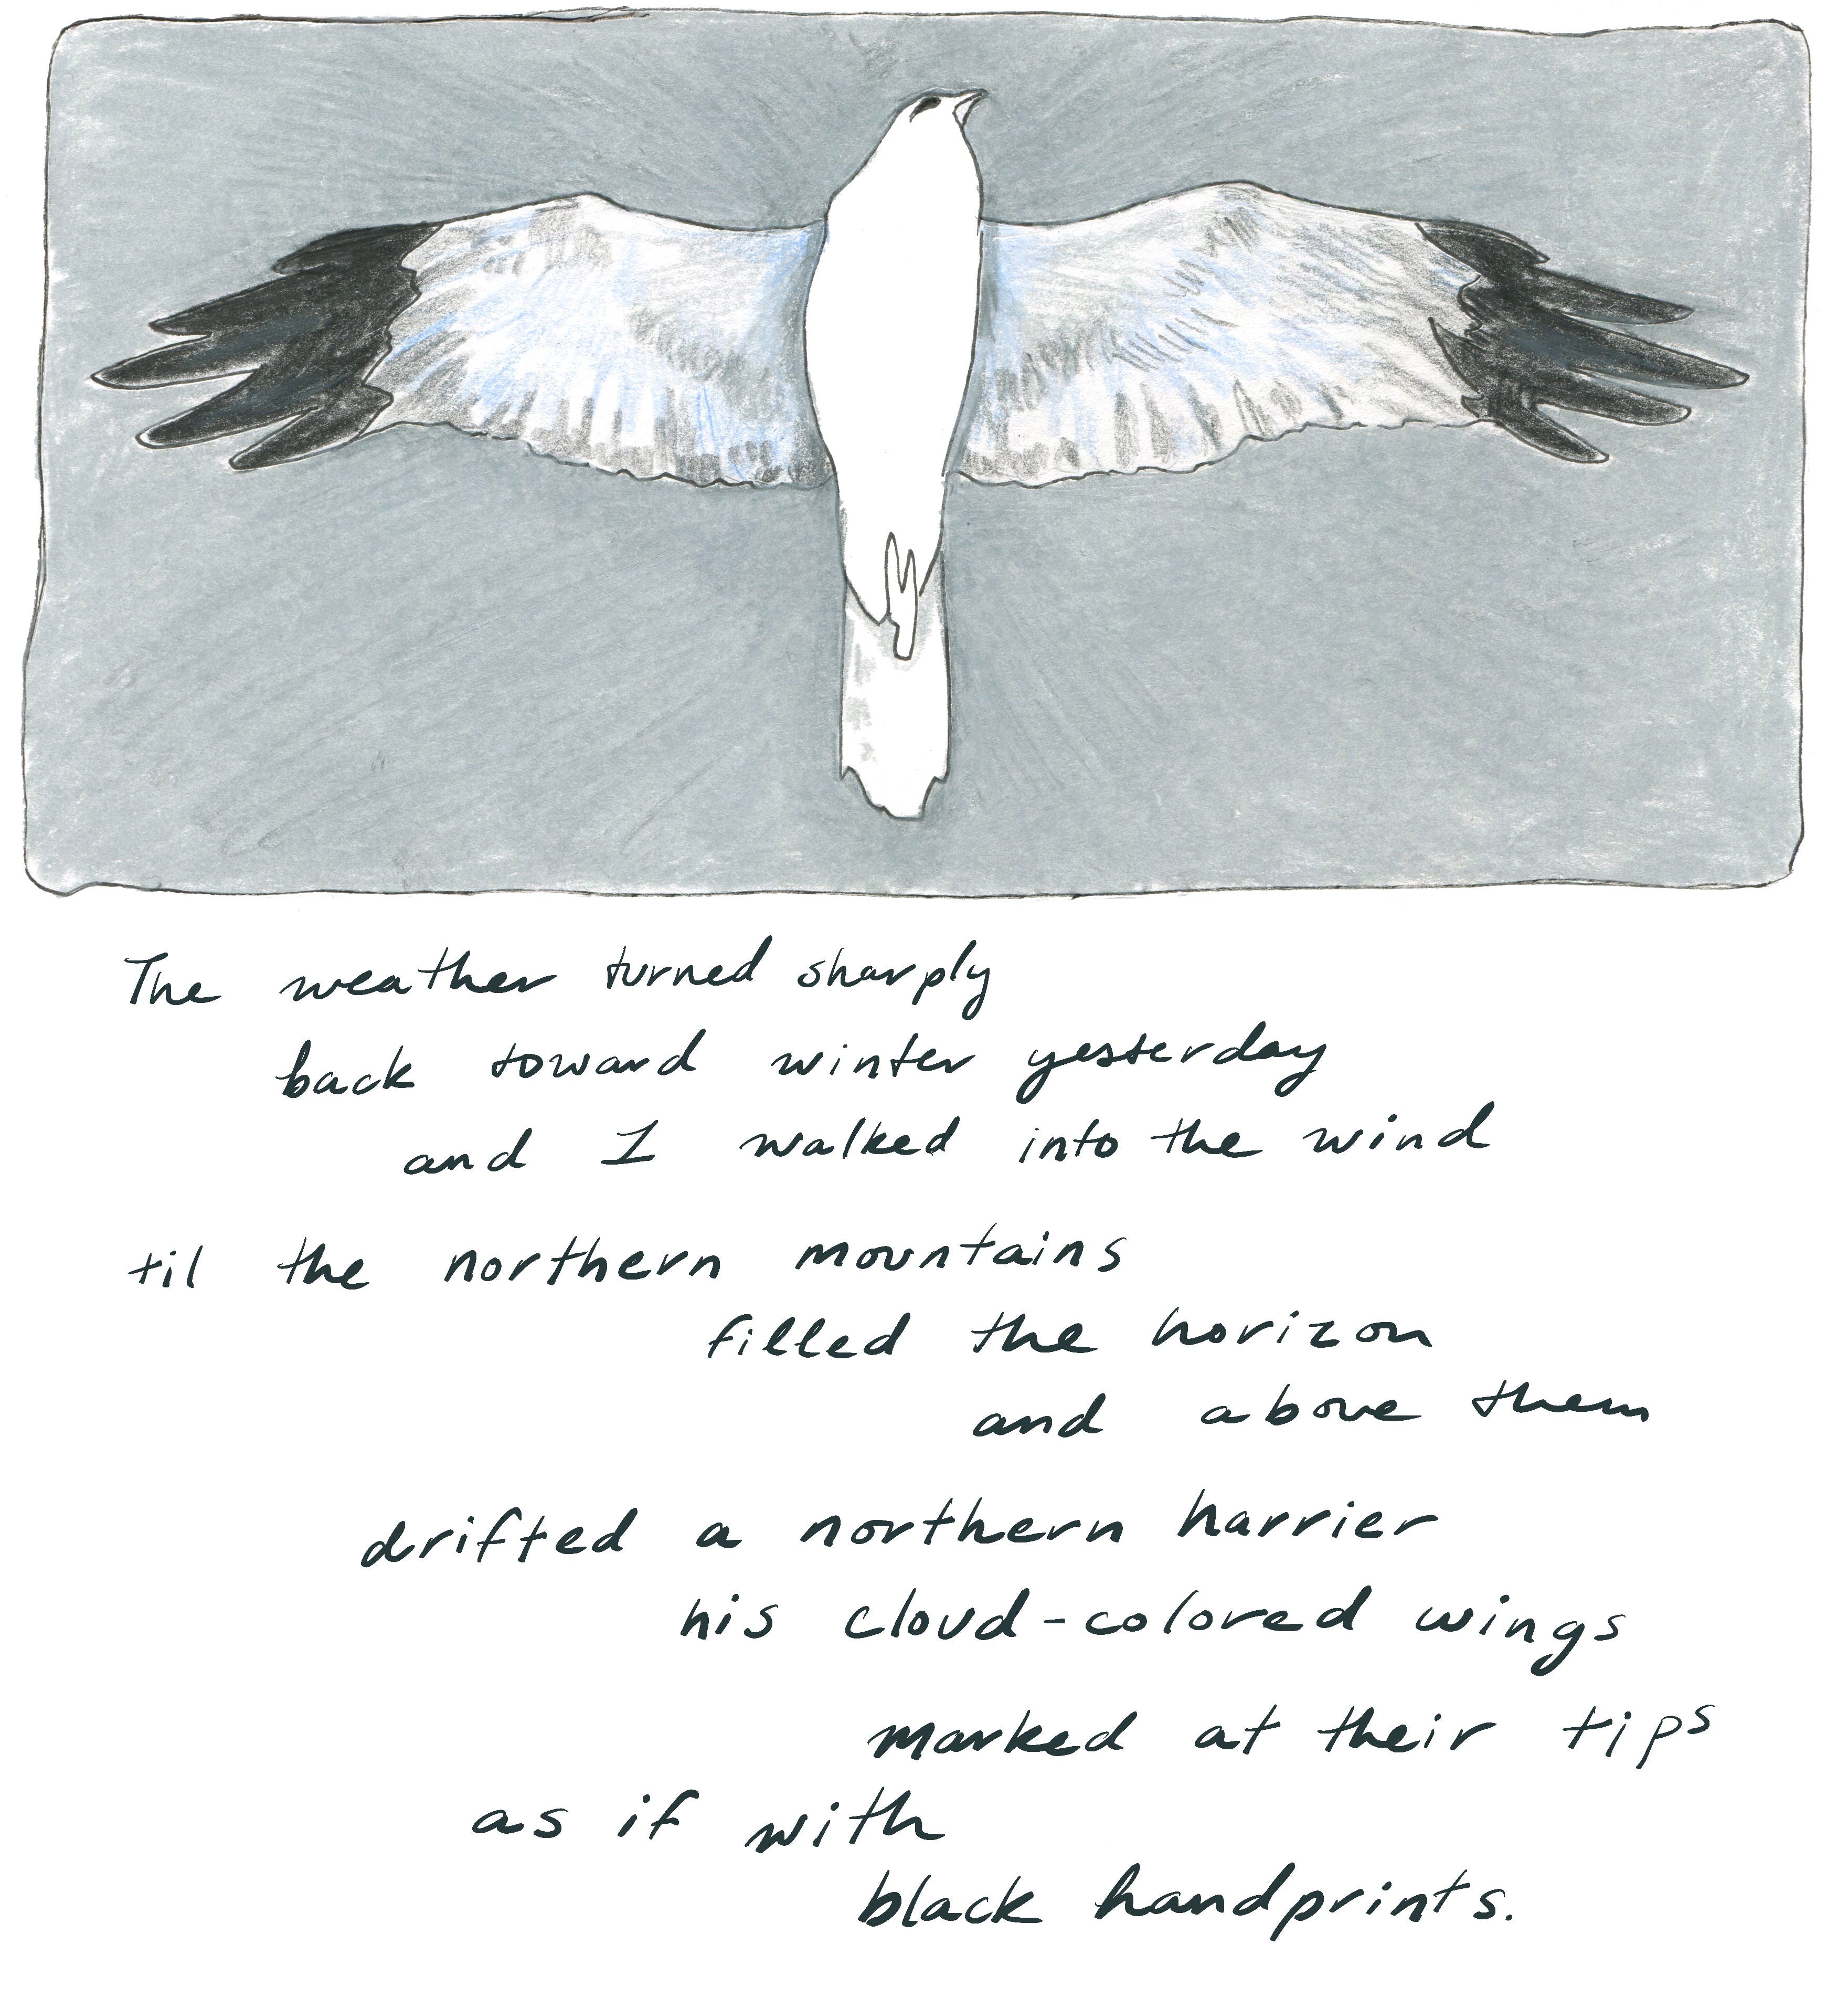 The weather turned sharply
back toward winter yesterday
and I walked into the wind
til the northern mountains
filled the horizon
and above them
drifted a northern harrier
his cloud-colored wings
marked at their tips
as if with
black handprints.